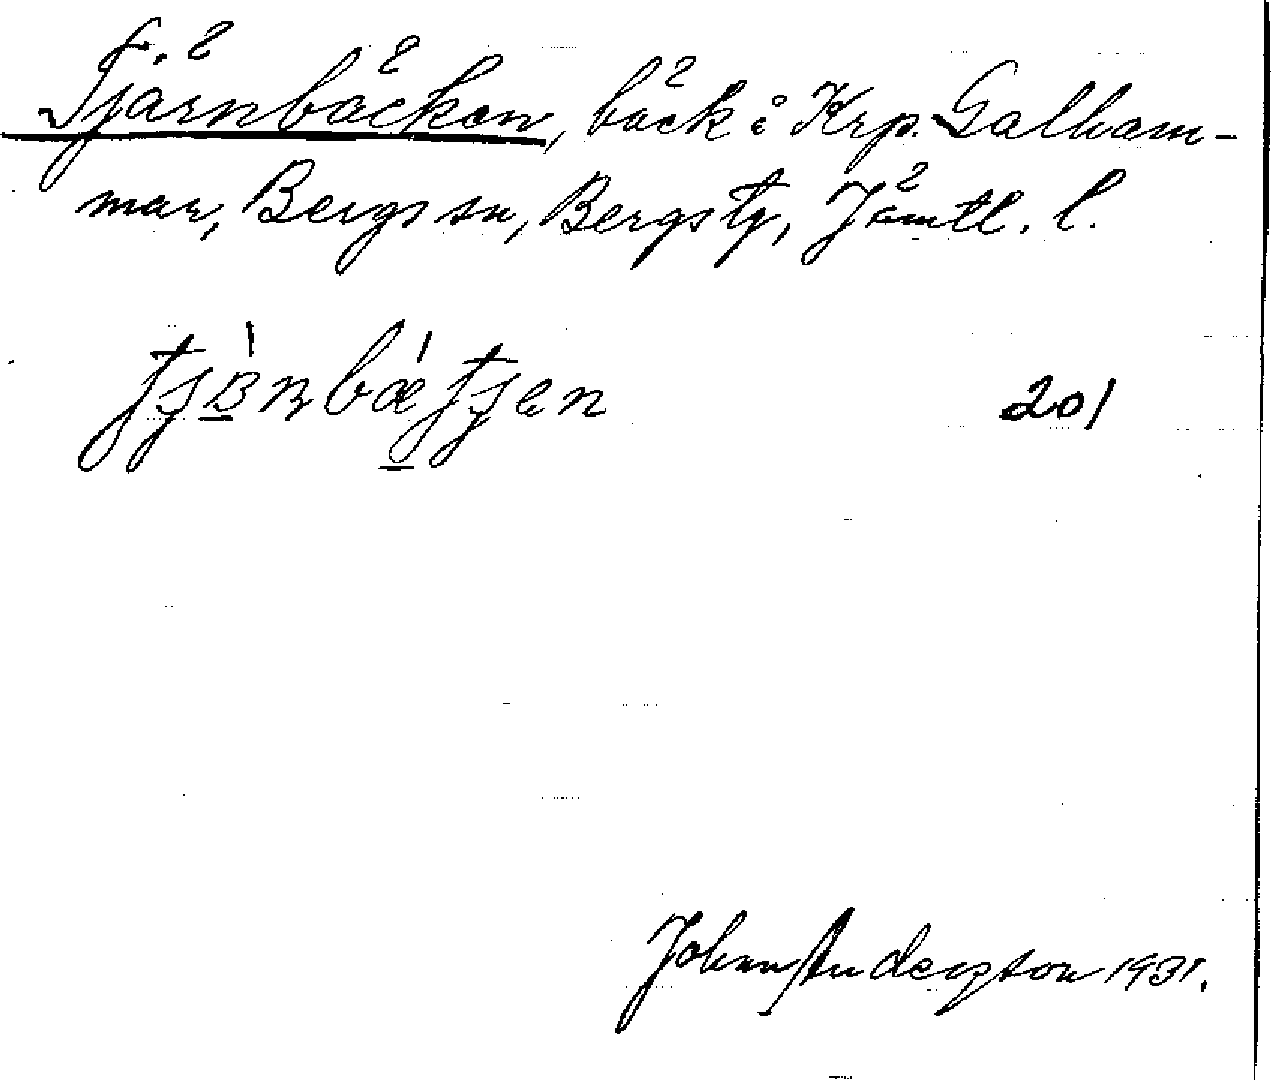 f. 2
Tjärnbäcken, bäck i Krp. Galham-
mar, Bergs sn, Bergs tg, Jämtl. l.
201
Johan Anderzson 1931.